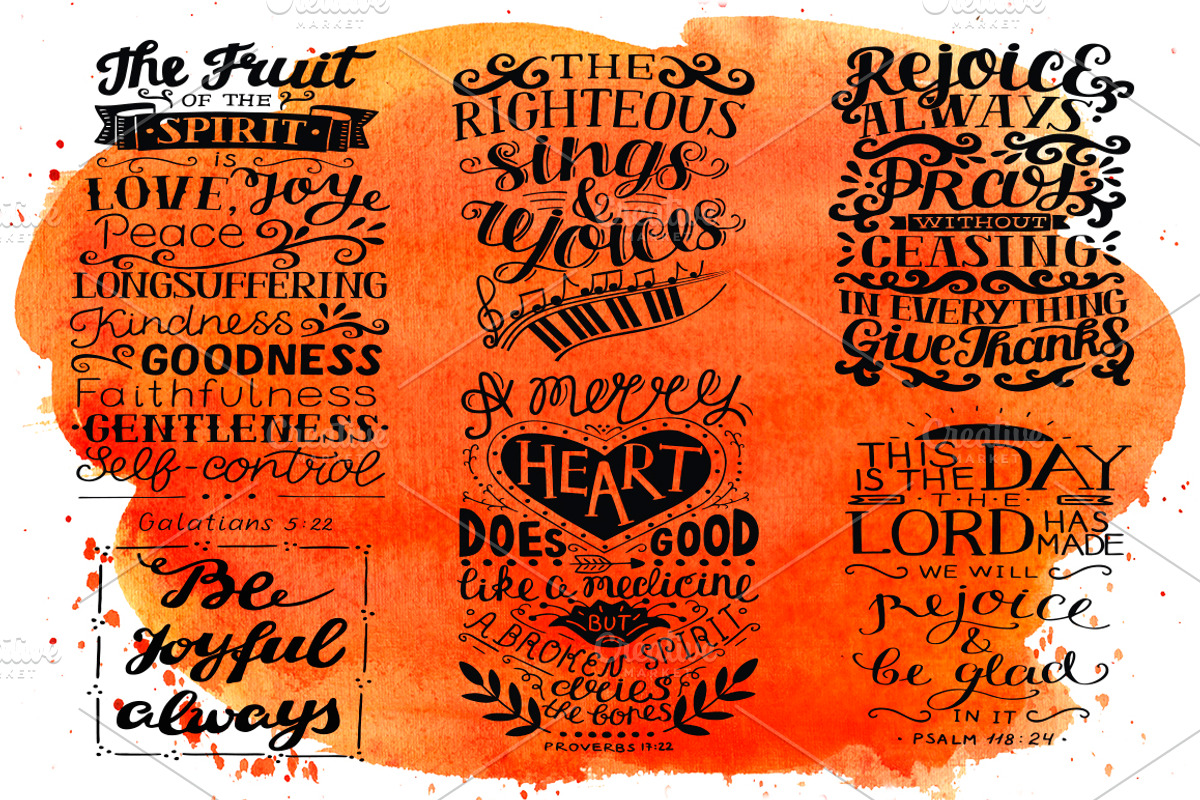 The Fruit
OF THE
SPIRIT
is
LOVE, Joy
Peace
LONGSUFFERING
Kindness
GOODNESS
Faithfulness
GENTLENESS
Self-control
Galatians 5:22
Be
Joyful
always
THE
RIGHTEOUS
sings
&
rejoices
A merry
HEART
DOES GOOD
like a medicine
BUT
A BROKEN SPIRIT
dries
the bones
PROVERBS 17:22
Rejoice
ALWAYS
Pray
WITHOUT
CEASING
IN EVERYTHING
Give Thanks
THIS
IS THE DAY
THE
LORD HAS
MADE
WE WILL
rejoice
&
be glad
IN IT
PSALM 118:24
Creative
MARKET